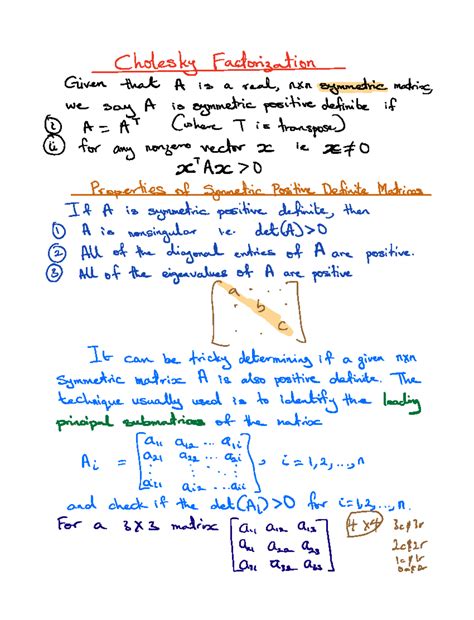 Cholesky Factorization
Given that A is a real, n×n symmetric matrix,
we say A is symmetric positive definite if
i A = Aᵀ (where T is transpose)
ii for any nonzero vector x ie x ≠ 0
xᵀAx > 0
Properties of Symmetric Positive Definite Matrices
If A is symmetric positive definite, then
1 A is nonsingular i.e. det(A) > 0
2 All of the diagonal entries of A are positive.
3 All of the eigenvalues of A are positive
a
b
c
It can be tricky determining if a given n×n
symmetric matrix A is also positive definite. The
technique usually used is to identify the leading
principal submatrices of the matrix
a₁₁ a₁₂ ... a₁ᵢ
Aᵢ = a₂₁ a₂₂ ... a₂ᵢ , i = 1, 2, ..., n
aᵢ₁ aᵢ₂ ... aᵢᵢ
and check if the det(Aᵢ) > 0 for i = 1, 2, ..., n.
For a 3×3 matrix a₁₁ a₁₂ a₁₃ 4×4 3c&3r
a₂₁ a₂₂ a₂₃ 2c&2r
a₃₁ a₃₂ a₃₃ 1c&1r